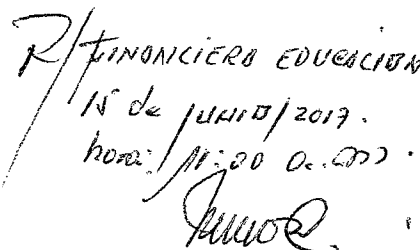 R/ FINANCIERA EDUCACION
15 de JUNIO/2017.
hora: 11:20 a.m.